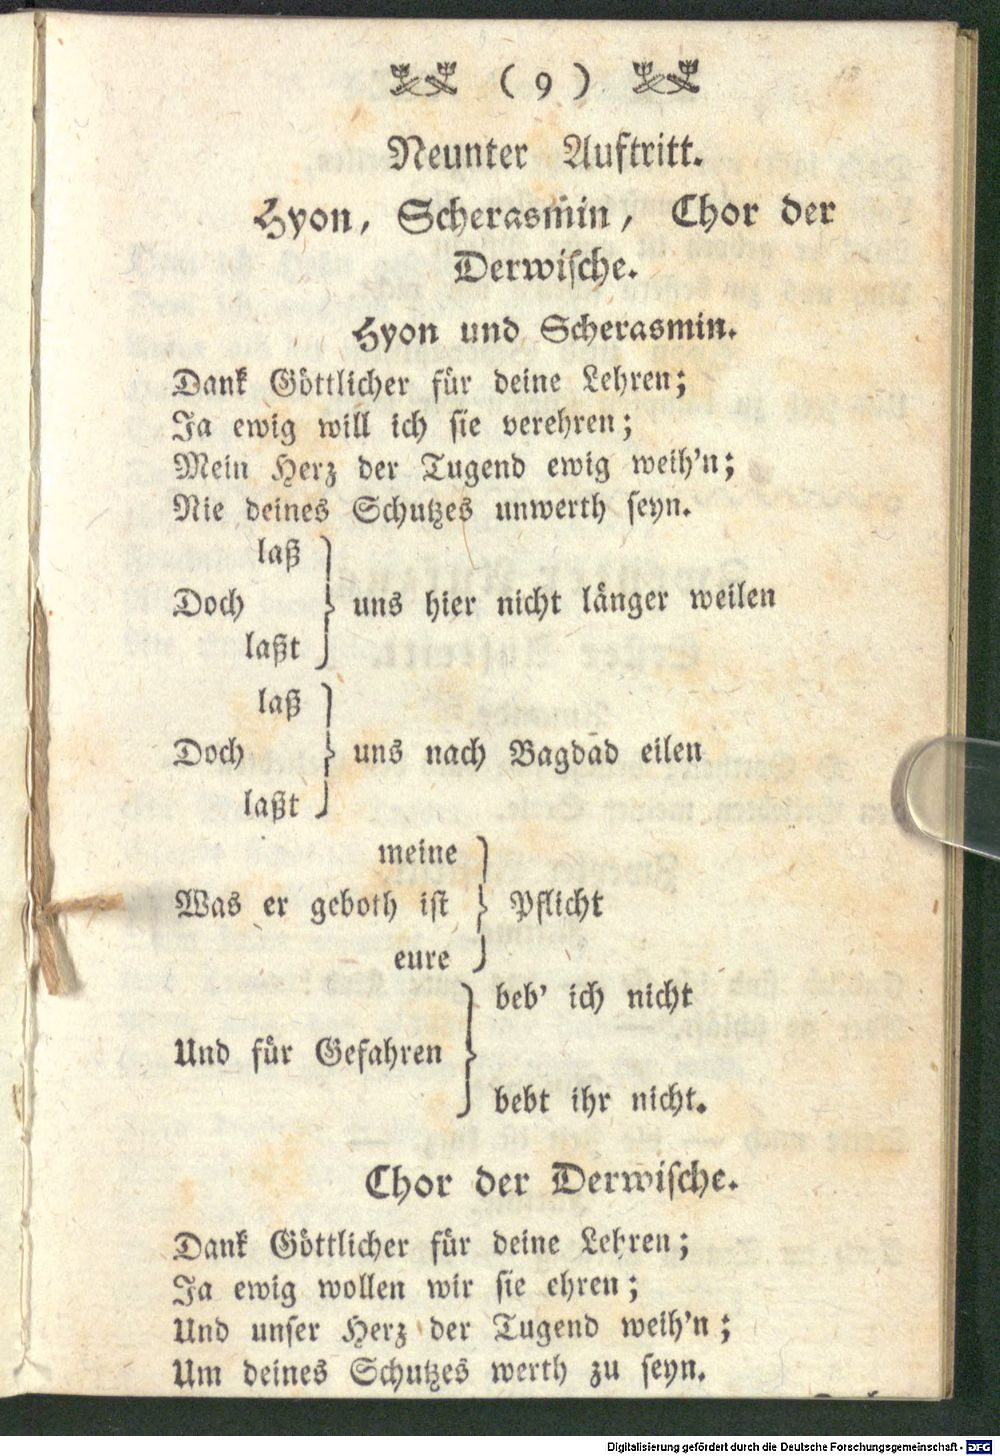 ( 9 )
Neunter Auftritt.
Hyon, Scherasmin, Chor der
Derwische.
Hyon und Scherasmin.
Dank Göttlicher für deine Lehren;
Ja ewig will ich sie verehren;
Mein Herz der Tugend ewig weih'n;
Nie deines Schutzes unwerth seyn.
laß
Doch } uns hier nicht länger weilen
laßt
laß
Doch } uns nach Bagdad eilen
laßt
meine
Was er geboth ist } Pflicht
eure
beb' ich nicht
Und für Gefahren }
bebt ihr nicht.
Chor der Derwische.
Dank Göttlicher für deine Lehren;
Ja ewig wollen wir sie ehren;
Und unser Herz der Tugend weih'n;
Um deines Schutzes werth zu seyn.
Digitalisierung gefördert durch die Deutsche Forschungsgemeinschaft - DFG